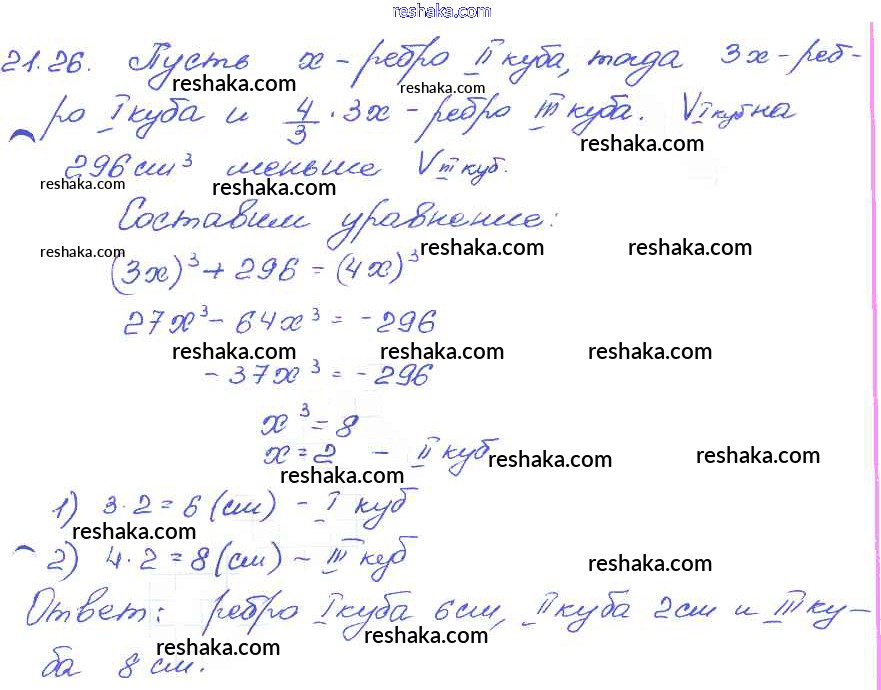 reshaka.com
21.26. Пусть x - ребро II куба, тогда 3x - реб-
reshaka.com reshaka.com
ро I куба и 4/3 · 3x - ребро III куба. V I куб на
reshaka.com
296 см³ меньше V III куб.
reshaka.com reshaka.com
Составим уравнение:
reshaka.com reshaka.com reshaka.com
(3x)³ + 296 = (4x)³
27x³ - 64x³ = -296
reshaka.com reshaka.com reshaka.com
-37x³ = -296
x³ = 8
x = 2 - II куб
reshaka.com reshaka.com reshaka.com
1) 3·2 = 6 (см) - I куб
reshaka.com
2) 4·2 = 8 (см) - III куб
reshaka.com
Ответ: ребро I куба 6 см, II куба 2 см и III ку-
reshaka.com reshaka.com
ба 8 см.